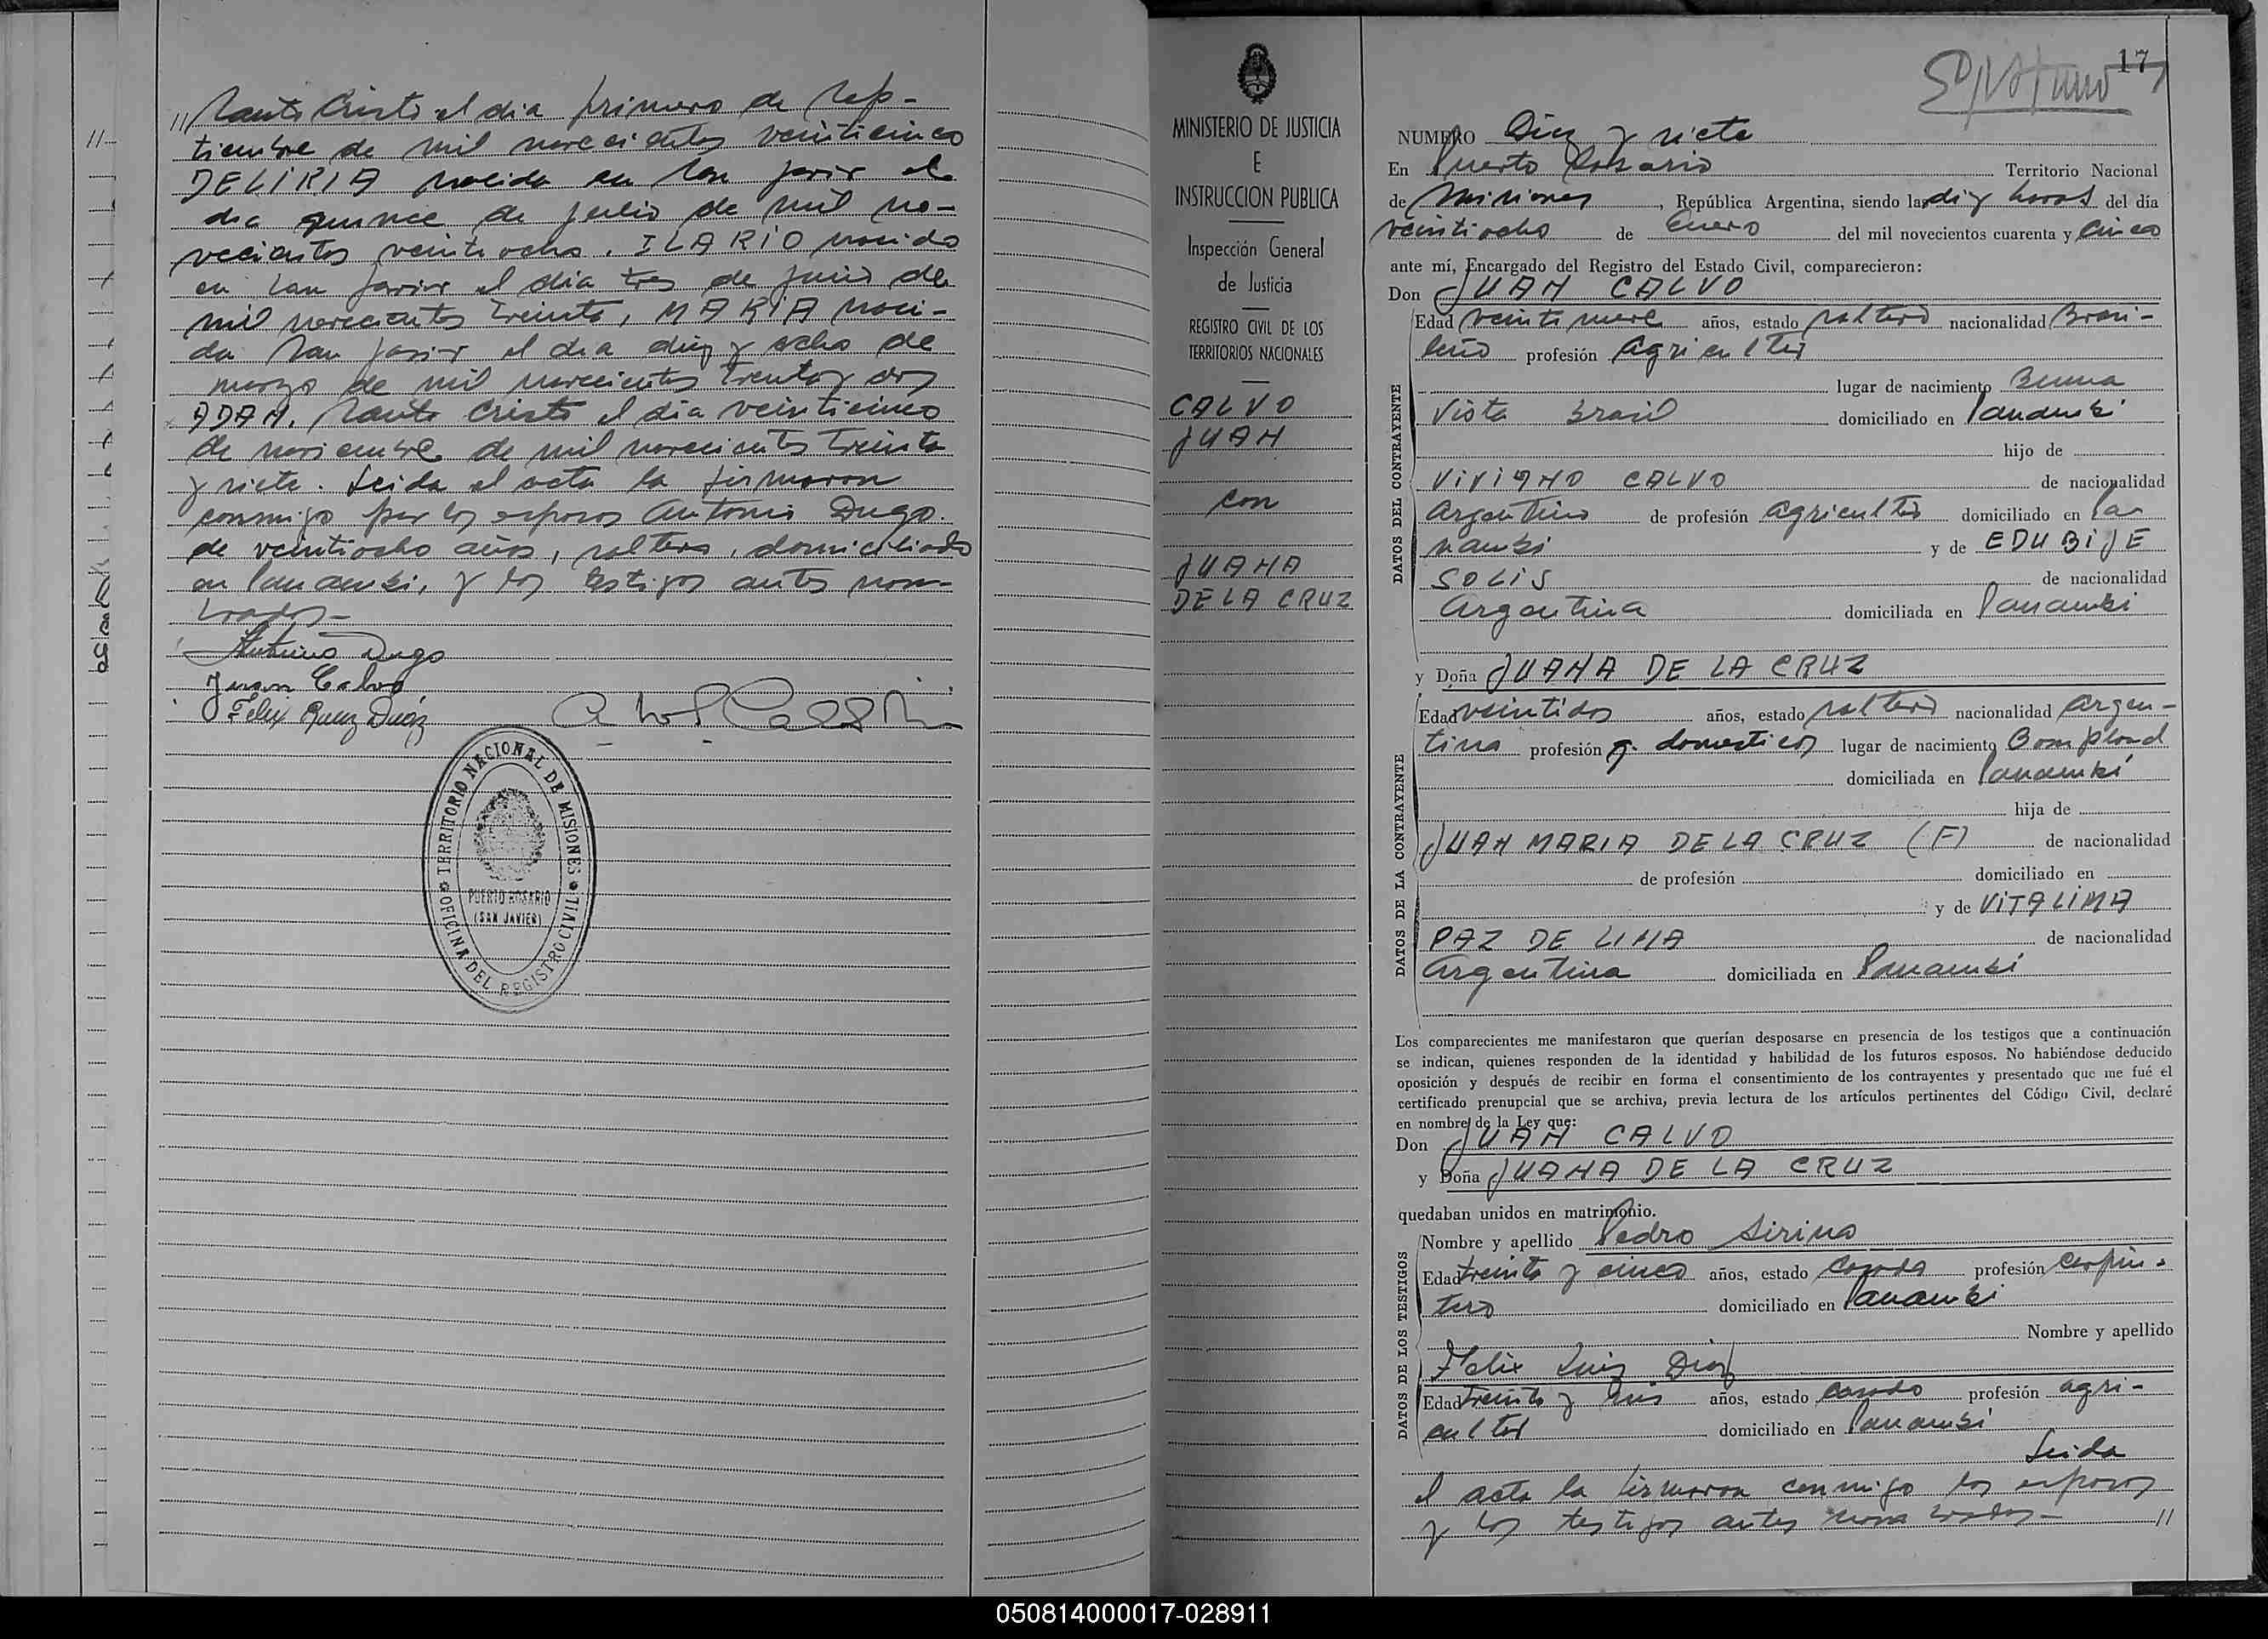 // Santo Cristo el dia primero de sep-
tiembre de mil novecientos veinticinco
DELIRIA nacida en San Javier el
dia quince de julio de mil no-
vecientos veintiocho. ILARIO nacido
en San Javier el dia tres de junio de
mil novecientos treinta, MARIA naci-
da San Javier el dia diez y ocho de
marzo de mil novecientos treinta y dos
ADAN. Santo Cristo el dia veinticinco
de noviembre de mil novecientos treinta
y siete. Leida el acta la firmaron
conmigo por los esposos Antonio Dugo
de veintiocho años, soltero, domiciliado
en Panambi, y los testigos antes nom-
brados-
Antonio Dugo
Juan Calvo
Felix Ruiz Diaz
OFICINA DEL REGISTRO CIVIL
TERRITORIO NACIONAL DE MISIONES
PUERTO ROSARIO
(SAN JAVIER)
MINISTERIO DE JUSTICIA
E
INSTRUCCION PUBLICA
Inspección General
de Justicia
REGISTRO CIVIL DE LOS
TERRITORIOS NACIONALES
CALVO
JUAN
con
JUANA
DE LA CRUZ
17
NUMERO Diez y siete
En Puerto Rosario Territorio Nacional
de Misiones, República Argentina, siendo las diez horas del día
veintiocho de Enero del mil novecientos cuarenta y cinco
ante mí, Encargado del Registro del Estado Civil, comparecieron:
Don JUAN CALVO
DATOS DEL CONTRAYENTE
Edad veintinueve años, estado soltero nacionalidad Brasi-
leño profesión agricultor
lugar de nacimiento Buena
Vista Brasil domiciliado en Panambi
hijo de
VIVIANO CALVO de nacionalidad
Argentino de profesión agricultor domiciliado en Pa-
nambi y de EDUBIJE
SOLIS de nacionalidad
Argentina domiciliada en Panambi
y Doña JUANA DE LA CRUZ
DATOS DE LA CONTRAYENTE
Edad veintidos años, estado soltera nacionalidad Argen-
tina profesión q. domesticos lugar de nacimiento Bompland
domiciliada en Panambi
hija de
JUAN MARIA DE LA CRUZ (F) de nacionalidad
de profesión domiciliado en
y de VITALINA
PAZ DE LIMA de nacionalidad
Argentina domiciliada en Panambi
Los comparecientes me manifestaron que querían desposarse en presencia de los testigos que a continuación
se indican, quienes responden de la identidad y habilidad de los futuros esposos. No habiéndose deducido
oposición y después de recibir en forma el consentimiento de los contrayentes y presentado que me fué el
certificado prenupcial que se archiva, previa lectura de los artículos pertinentes del Código Civil, declaré
en nombre de la Ley que:
Don JUAN CALVO
y Doña JUANA DE LA CRUZ
quedaban unidos en matrimonio.
DATOS DE LOS TESTIGOS
Nombre y apellido Pedro Sirino
Edad treinta y cinco años, estado casado profesión carpin-
tero domiciliado en Panambi
Nombre y apellido
Felix Ruiz Diaz
Edad treinta y seis años, estado casado profesión agri-
cultor domiciliado en Panambi
Leida
el acta la firmaron conmigo los esposos
y los testigos antes nombrados- //
050814000017-028911